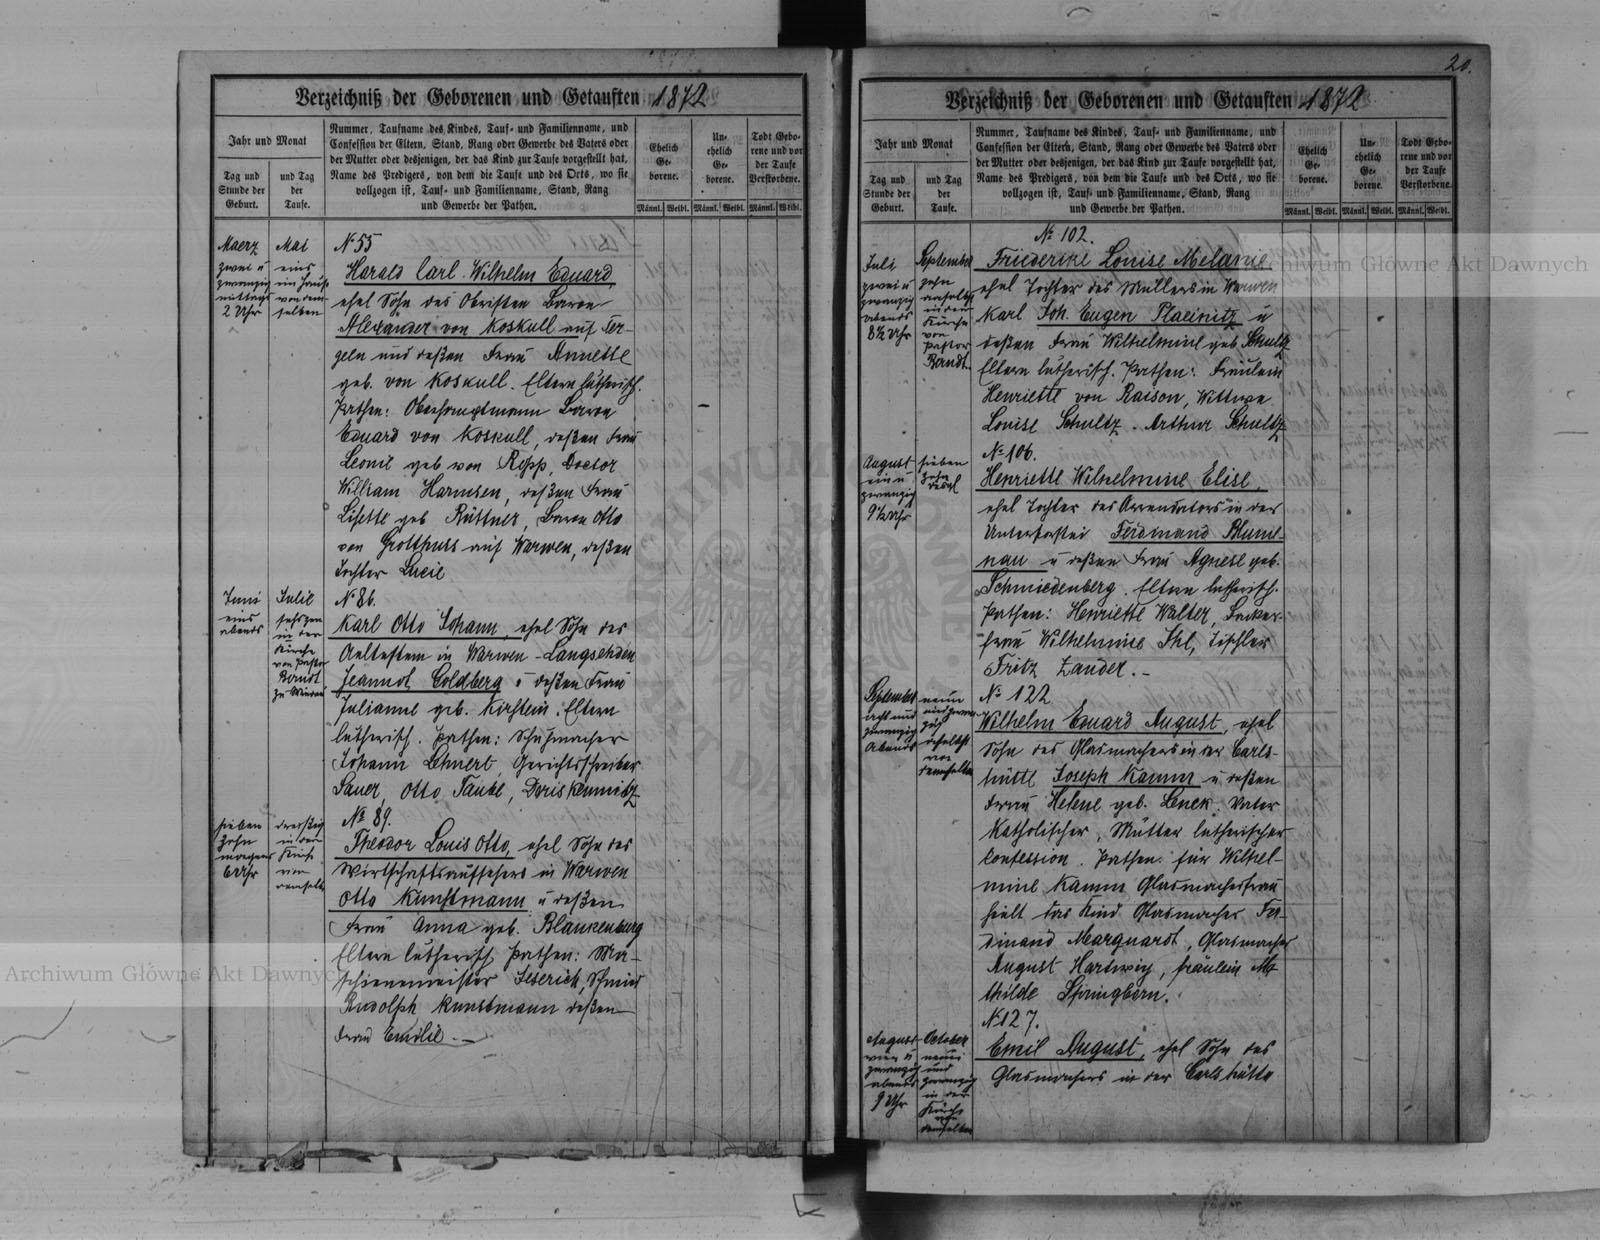 Verzeichniß der Geborenen und Getauften 1872
Jahr und Monat
Tag und Stunde der Geburt.
und Tag der Taufe.
Nummer, Taufname des Kindes, Tauf- und Familienname, und
Confession der Eltern, Stand, Rang oder Gewerbe des Vaters oder
der Mutter oder desjenigen, der das Kind zur Taufe vorgestellt hat,
Name des Predigers, von dem die Taufe und des Orts, wo sie
vollzogen ist, Tauf- und Familienname, Stand, Rang
und Gewerbe der Pathen.
Ehelich Ge-borene.
Un-ehelich Ge-borene.
Todt Gebo-rene und vor der Taufe Verstorbene.
Männl. Weibl. Männl. Weibl. Männl. Weibl.
Maerz
zwei u
zwanzig
mittags
2 Uhr
Mai
eins
im Hause
von dem-
selben
N 55
Harald Carl Wilhelm Eduard,
ehel Sohn des Obristen Baron
Alexander von Koskull auf Ter-
geln und deßen Frau Annette
geb. von Koskull. Eltern lutherisch.
Pathen: Oberhauptmann Baron
Eduard von Koskull, deßen Frau
Leonie geb von Ropp, Doctor
William Harmsen, deßen Frau
Lisette geb Rüttner, Baron Otto
von Grotthuss auf Warwen, deßen
Tochter Lucie
Juni
eins
abends
Julie
sechszehn
in der
Kirche
von Pastor
Berndt
N 86.
Karl Otto Johann, ehel Sohn des
Aeltesten in Warwen-Langsehden
Jeannot Goldberg u deßen Frau
Julianne geb. Kirstein. Eltern
lutherisch. Pathen: Schuhmacher
Johann Lehnert, Gerichtsschreiber
Sauer, Otto Taube, Doris Kemnitz
sieben
zehn
morgens
6 Uhr
dreißig
in der
Kirche
von
demselb.
No 89.
Theodor Louis Otto, ehel Sohn des
Wirtschaftsaufsehers in Warwen
Otto Kunstmann u deßen
Frau Anna geb. Blankenburg
Eltern lutherisch Pathen: Ma-
schienemeister Seserick, Schmied
Rudolph Kunstmann deßen
Frau Emilie. —
20.
Verzeichniß der Geborenen und Getauften 1872
Jahr und Monat
Tag und Stunde der Geburt.
und Tag der Taufe.
Nummer, Taufname des Kindes, Tauf- und Familienname, und
Confession der Eltern, Stand, Rang oder Gewerbe des Vaters oder
der Mutter oder desjenigen, der das Kind zur Taufe vorgestellt hat,
Name des Predigers, von dem die Taufe und des Orts, wo sie
vollzogen ist, Tauf- und Familienname, Stand, Rang
und Gewerbe der Pathen.
Ehelich Ge-borene.
Un-ehelich Ge-borene.
Todt Gebo-rene und vor der Taufe Verstorbene.
Männl. Weibl. Männl. Weibl. Männl. Weibl.
Juli
zwei u
zwanzig
abends
8½ Uhr
September
zehn
in der
Kirche
von
Pastor
Berndt.
No 102.
Friederike Louise Melanie
ehel Tochter des Müllers in Warwen
Karl Joh. Eugen Placinitz u
deßen Frau Wilhelmine geb. Schultz
Eltern lutherisch. Pathen: Fräulein
Henriette von Raison, Wittwe
Louise Schultz. Arthur Schultz
August
ein u
zwanzig
9½ Uhr
sieben
zehn
No 106.
Henriette Wilhelmine Elise,
ehel Tochter des Arrendators in der
Unterforstei Ferdinand Blume-
nau u deßen Frau Agnese geb.
Schmiedenberg. Eltern lutherisch.
Pathen: Henriette Walter,
frau Wilhelmine Ihl, Tischler
Fritz Zander. —
September
acht und
zwanzig
Abends
neun
und zwan-
zig
daselbst
von
demselben
No 122
Wilhelm Eduard August, ehel
Sohn des Glasmachers in der Carls-
hütte Joseph Kamm u deßen
Frau Helene geb. Lenek. Vater
Katholischer, Mutter lutherischer
Confession. Pathen: für Wilhel-
mine Kamm Glasmacherfrau
hielt das Kind Glasmacher Fer-
dinand Marquardt, Glasmacher
August Hartwig, fräulein Ma-
thilde Springborn.
August
vier u
zwanzig
abends
9 Uhr
October
neun
und
zwanzig
in der
Kirche
von
demselben
N 127.
Emil August, ehel Sohn des
Glasmachers in der Carlshütte
Archiwum Główne Akt Dawnych
Archiwum Główne Akt Dawnych